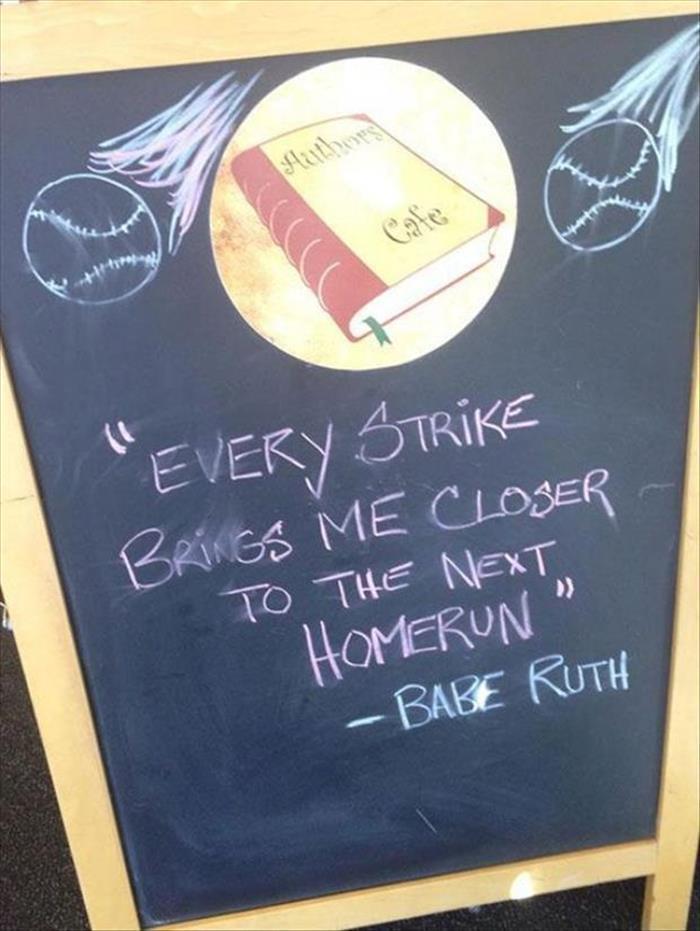 Authors
Cafe
"EVERY STRIKE
BRINGS ME CLOSER
TO THE NEXT
HOMERUN"
- BABE RUTH